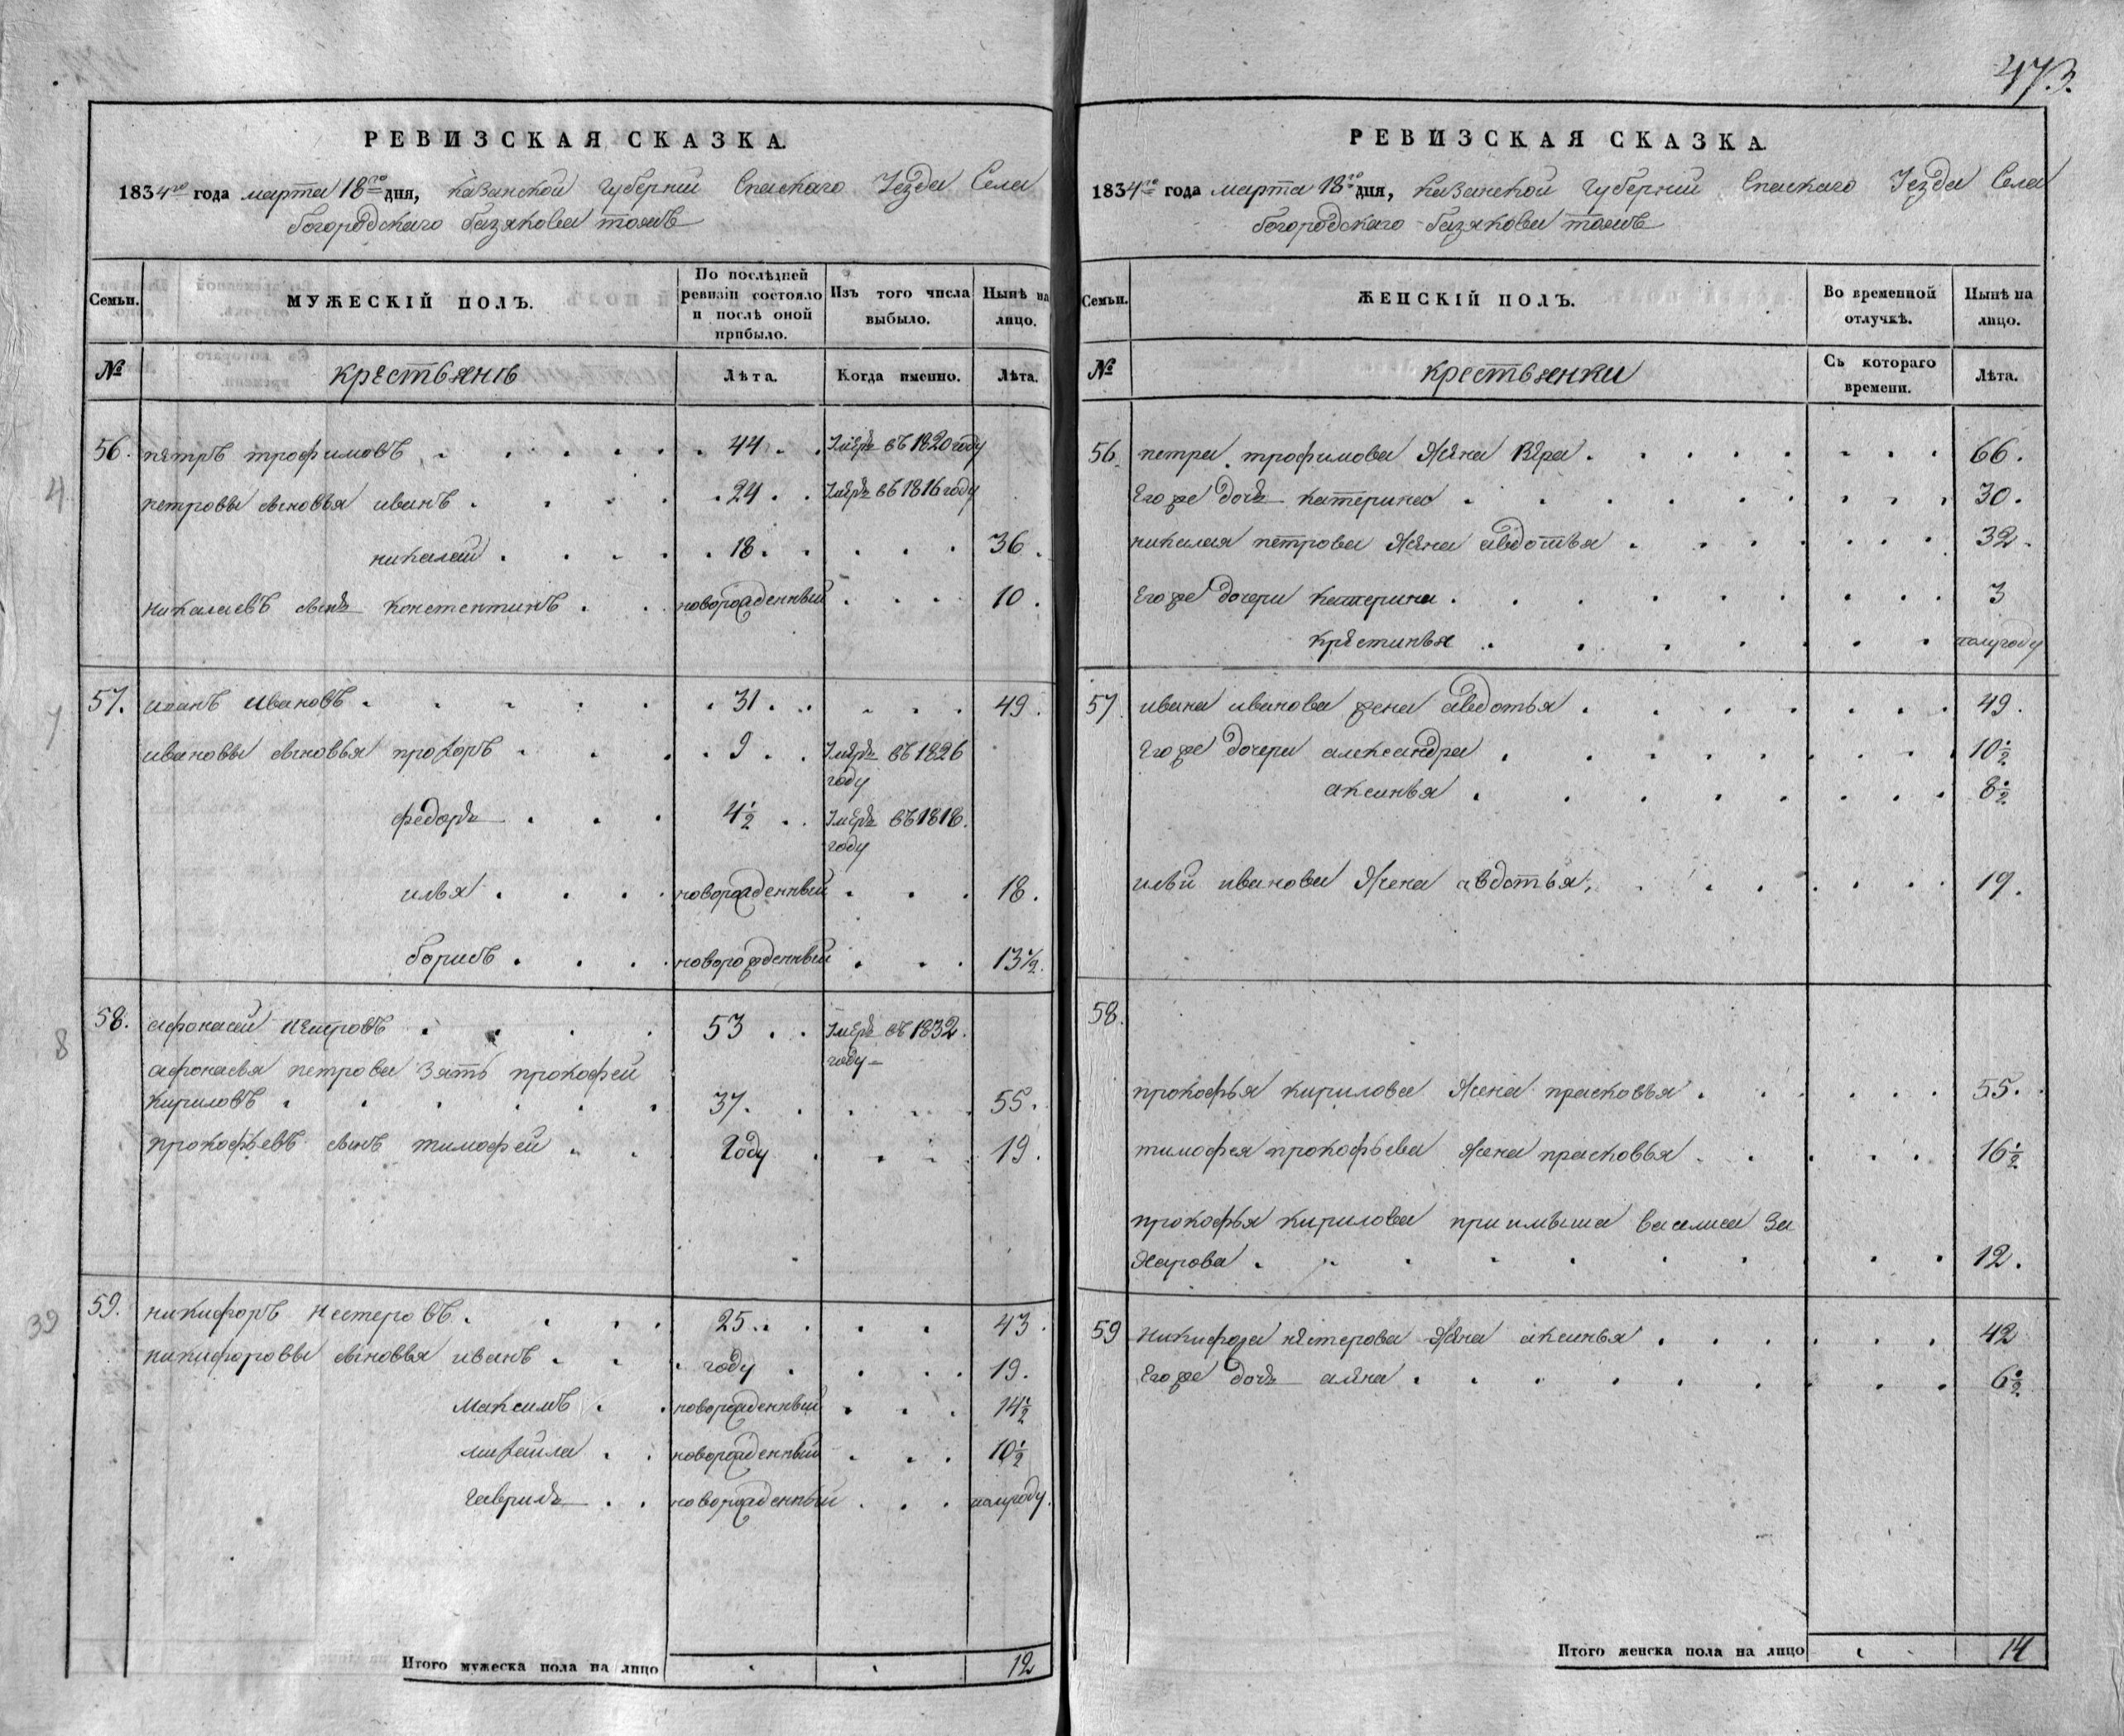 473.
РЕВИЗСКАЯ СКАЗКА
1834го года марта 18го дня, казанской губерний Спаскаго Уезда Села
богородскаго базякова тожъ
Семьи. МУЖЕСКІЙ ПОЛЪ. По послѣдней ревизіи состояло и послѣ оной прибыло. Изъ того числа выбыло. Нынѣ на лицо.
№ крестьянъ Лѣта. Когда именно. Лѣта.
56. петръ трофимовъ 44 Умеръ въ 1820 году
петровы сыновья иванъ 24 Умеръ въ 1816 году
николай 18 36
николаевъ сынъ констентинъ новорожденный 10
57. иванъ ивановъ 31 49
ивановы сыновья прохоръ 9 Умеръ въ 1826
году
федоръ 4½ Умеръ въ 1818
году
илья новорожденный 18
борисъ новорожденный 13½
58. афонасей петровъ 53 Умеръ въ 1832
году
афонасья петрова зять прокофей
кириловъ 37 55
прокофьевъ сынъ тимофей году 19
59. никифоръ нестеровъ 25 43
никифоровы сыновья иванъ году 19
максимъ новорожденный 14½
михайла новорожденный 10½
гаврилъ новорожденный полугоду
Итого мужеска пола на лицо 12
4
7
8
39
РЕВИЗСКАЯ СКАЗКА
1834го года марта 18го дня, казанской губерний Спаскаго Уезда Села
богородскаго базякова тожъ
Семьи. ЖЕНСКІЙ ПОЛЪ. Во временной отлучкѣ. Нынѣ на лицо.
№ крестьянки Съ котораго времени. Лѣта.
56. петра трофимова жена вера 66
Его же дочь катерина 30
николая петрова жена авдотья 32
Его же дочери катерина 3
крестинья полугоду
57. ивана иванова жена авдотья 49
Его же дочери александра 10½
аксинья 8½
ильи иванова жена авдотья 19
58.
прокофья кирилова жена прасковья 55
тимофея прокофьева жена прасковья 16½
прокофья кирилова приимыша василиса За
харова 12
59 никифора нестерова жена аксинья 42
Его же дочь алена 6½
Итого женска пола на лицо 14